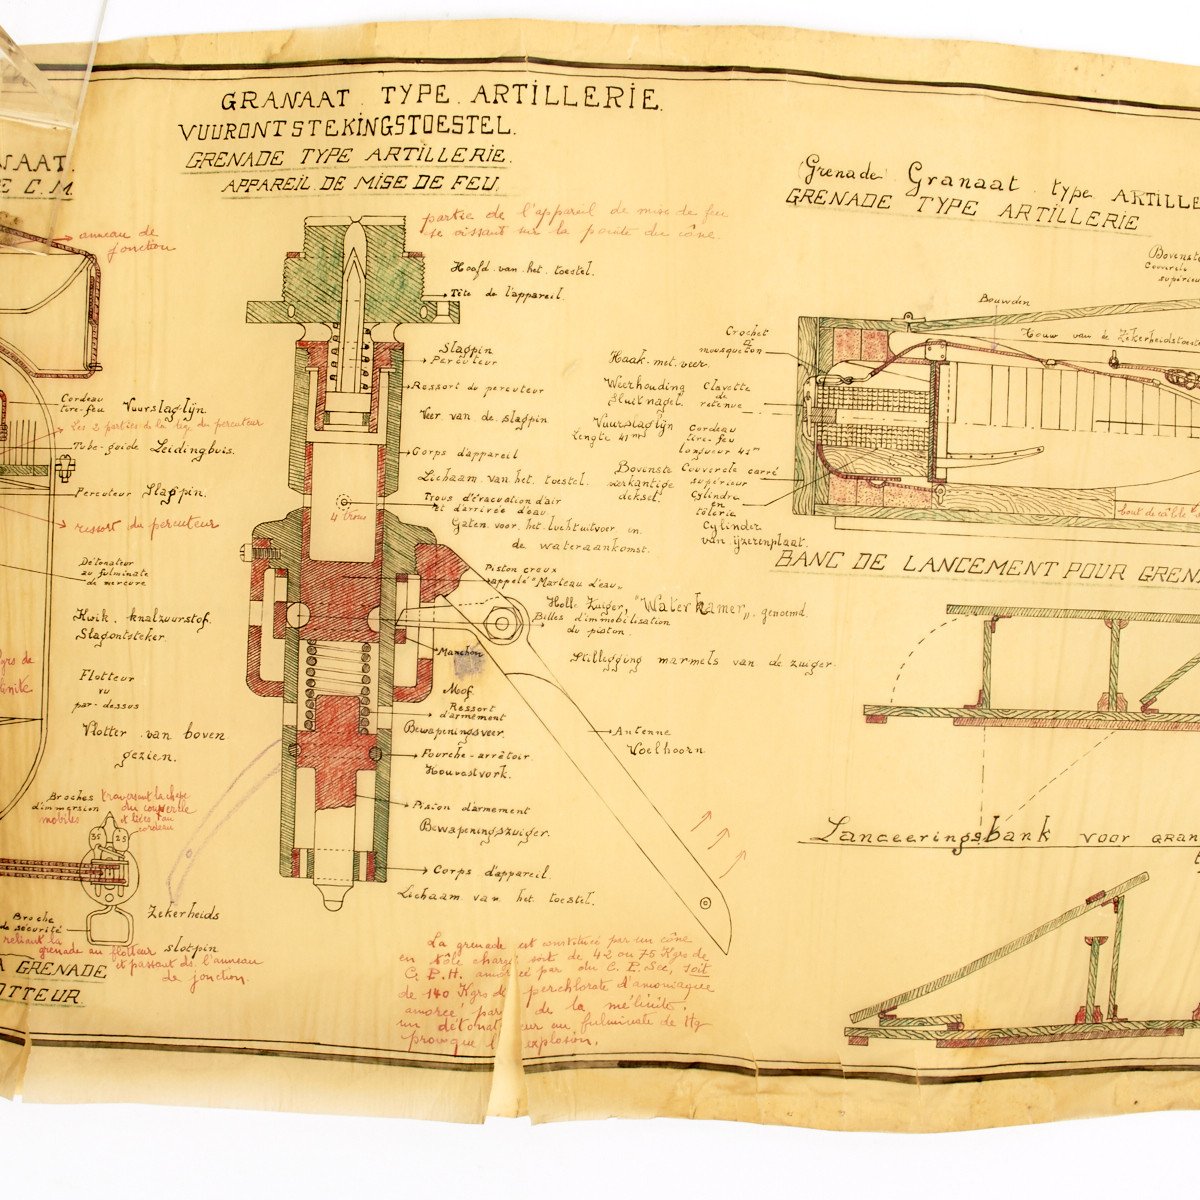 GRANAAT. TYPE. ARTILLERIE.
VUURONTSTEKINGSTOESTEL.
GRENADE TYPE ARTILLERIE.
APPAREIL DE MISE DE FEU.
partie de l'appareil de mise de feu
sur la pointe du cône.
Hoofd van het toestel.
Tête de l'appareil.
Slagpin
Percuteur
Ressort du percuteur
Veer van de slagpin
Corps d'appareil
Lichaam van het toestel.
Trous d'évacuation d'air
et d'arrivée d'eau
4 trous
Gaten voor het luchtuitvoer en
de wateraankomst.
Piston creux
appelé "Marteau d'eau"
Holle Zuiger, "Waterkamer" genoemd.
Billes d'immobilisation
du piston.
Stillegging marmels van de zuiger.
Manchon
Mof.
Ressort
d'armement
Bewapeningsveer.
Fourche-arrêtoir.
Houvastvork.
Antenne
Voelhoorn
Piston d'armement
Bewapeningszuiger.
Corps d'appareil
Lichaam van het toestel.
La grenade est constituée par un cône
en tôle chargé soit de 42 ou 75 Kgrs de
amorcé par du soit
de 140 Kgrs de perchlorate d'amoniaque
amorcé par de la mélinite.
un détonateur au fulminate de Hg
provoque l'explosion.
NAAT.
E C.M.
anneau de
jonction
Cordeau
tire-feu Vuurslaglijn.
Les 2 parties de la tige du percuteur
Tube-guide Leidingbuis.
Percuteur Slagpin.
ressort du percuteur
Détonateur
au fulminate
de mercure
Kwik knalzuurstof.
Slagontsteker
Flotteur
vu
par-dessus
Vlotter van boven
gezien.
Broches
d'immersion
mobiles
traversant la chape
du couvercle
cordeau
35 25
Broche
de sécurité
Zekerheids
slotpin
reliant la
grenade au flotteur
et passant ds. l'anneau
de jonction.
A GRENADE
OTTEUR
Grenade Granaat type ARTILLE
GRENADE TYPE ARTILLERIE
Bovenste
Couvercle
supérieur
Bouwden
Crochet
à
mousqueton
Haak met veer.
Weerhouding
Sluitnagel.
Clavette
de
retenue
Vuurslaglijn
Lengte 41m
Cordeau
tire-feu
longueur 41m
Bovenste
vierkantige
deksel.
Couvercle carré
supérieur
Cylindre
en
tôlerie
Cylinder
van ijzerenplaat.
BANC DE LANCEMENT POUR GREN
Lanceeringsbank VOOR GRAN